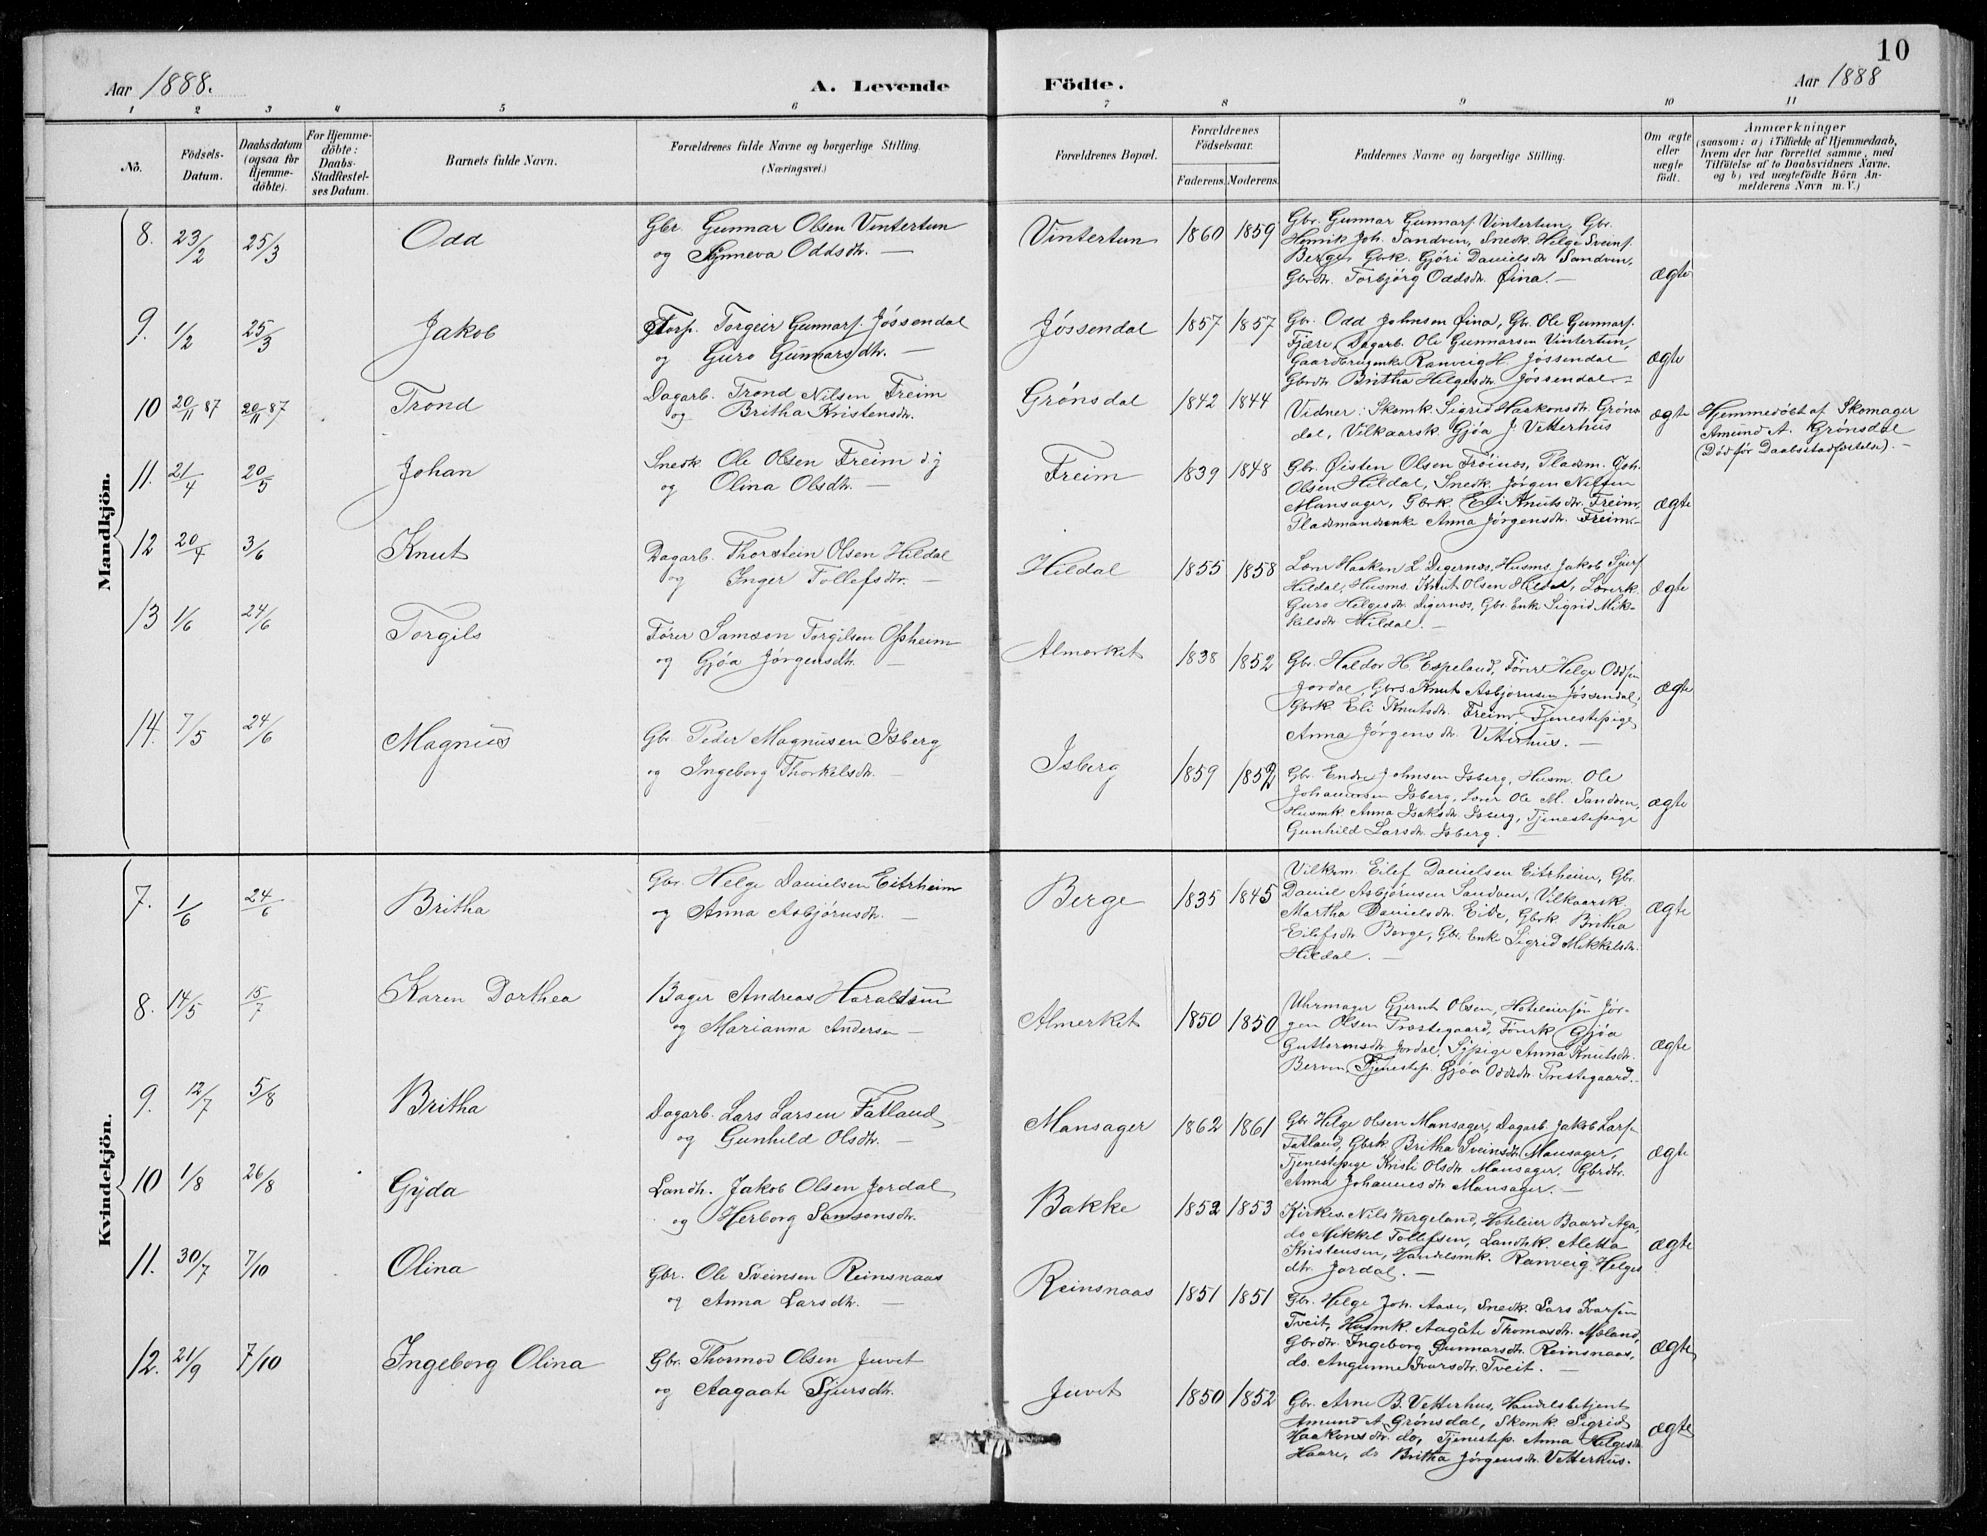 10
Aar 1888.
A. Levende
Födte.
Aar 1888
1 2 3 4 5 6 7 8 9 10 11
No.
Födsels-Datum.
Daabsdatum (ogsaa for Hjemme-döbte).
For Hjemme-döbte: Daabs-Stadfæstel-ses Datum.
Barnets fulde Navn.
Forældrenes fulde Navne og borgerlige Stilling.
(Næringsvei.)
Forældrenes Bopæl.
Forældrenes Födselsaar.
Faderens. Moderens.
Faddernes Navne og borgerlige Stilling.
Om ægte eller uægte födt.
Anmærkninger
(saasom: a) i Tilfælde af Hjemmedaab, hvem der har forrettet samme, med Tilföielse af to Daabsvidners Navne. og b) ved uægtefödte Börn An-melderens Navn m. V.)
Mandkjön.
8. 23/2 25/3 Odd
Gbr. Gunnar Olsen Vintertun
og Synneva Oddsdtr. —
Vintertun 1860 1859
Gbr. Gunnar Gunnars. Vintertun, Gbr.
Henrik Joh. Sandven, Snedk. Helge Sveins.
Berge, Gbrk. Gjöri Danielsdtr. Sandven,
Gbrdtr. Torbjörg Oddsdtr. Öina. —
ægte
9. 1/2 25/3 Jakob
Torp. Torgeir Gunnars. Jössendal
og Guro Gunnarsdtr. —
Jössendal 1857 1857
Gbr. Odd Johnsen Öina, Gbr. Ole Gunnars.
Fjære, Dagarb. Ole Gunnarsen Vintertun,
Gaardbrugenke Ranveig H. Jössendal
Gbrdtr. Britha Helgesdtr. Jössendal. —
ægte
10 20/11 87 20/11 87 Trond
Dagarb. Trond Nilsen Freim
og Britha Kristensdtr.
Grönsdal 1842 1844
Vidner: Skomk. Sigrid Haakonsdtr. Gröns-
dal, Vilkaarsk. Gjöa J. Vetterhus
ægte
Hjemmedöbt af Skomager
Amund A. Grönsdal
(Död för Daabsstadfæstelse). —
11. 21/4 20/5 Johan
Snedk. Ole Olsen Freim d.y
og Olina Olsdtr. —
Freim 1839 1848
Gbr. Östen Olsen Fröines, Pladsm. Joh.
Olsen Hildal, Snedk. Jörgen Nilsen
Mansager, Gbrk. Eli Knutsdtr. Freim,
Pladsmandsenke Anna Jörgensdtr. Freim. —
ægte
12 20/4 3/6 Knut
Dagarb. Thorstein Olsen Hildal
og Inger Tollefsdtr. —
Hildal 1855 1858
Lærer Haaken L. Digernes, Husms. Jakob Sjurs.
Hildal, Husms. Knut Olsen Hildal, Lærerk.
Guro Helgesdtr. Digernes, Gbr. Enke Sigrid Mik-
kelsdtr. Hildal. —
ægte
13 1/6 24/6 Torgils
Förer Samson Torgilsen Opheim
og Gjöa Jörgensdtr. —
Almerket 1838 1852
Gbr. Haldor H. Espeland, Förer Helge Odds.
Jordal, Gbrs. Knut Asbjörnsen Jössendal,
Gbrk. Eli Knutsdtr. Freim, Tjenestepige
Anna Jörgensdtr. Vetterhus. —
ægte
14. 7/5 24/6 Magnus
Gbr. Peder Magnusen Isberg
og Ingeborg Thorkelsdtr. —
Isberg 1859 1852
Gbr. Endre Johnsen Isberg, Husm. Ole
Johannesen Isberg, Lærer Ole M. Sandven,
Husmk. Anna Isaksdtr. Isberg, Tjenestepige
Gunhild Larsdtr. Isberg. —
ægte
Kvindekjön.
7. 1/6 24/6 Britha
Gbr. Helge Danielsen Eitrheim
og Anna Asbjörnsdtr. —
Berge 1835 1845
Vilksm. Eilef Danielsen Eitrheim, Gbr.
Daniel Asbjörnsen Sandven, Vilkaarsk.
Martha Danielsdtr. Eide, Gbrk. Britha
Eilefsdtr. Berge, Gbr. Enke Sigrid Mikkelsdtr.
Hildal. —
ægte
8. 14/5 15/7 Karen Dorthea
Bager Andreas Haraldsen
og Marianna Andersen —
Almerket 1850 1850
Uhrmager Gjermt Olsen, Hoteleiersön Jör-
gen Olsen Præstegaard, Förerk. Gjöa
Guttormsdtr. Jordal, Sypige Anna Knutsdtr.
Berven, Tjenestep. Gjöa Oddsdtr. Prestegaard. —
ægte
9. 12/7 5/8 Britha
Dagarb. Lars Larsen Fatland
og Gunhild Olsdtr. —
Mansager 1862 1861
Gbr. Helge Olsen Mansager, Dagarb. Jakob Lars.
Fatland, Gbrk. Britha Sveinsdtr. Mansager,
Tjenestepige Kristi Olsdtr. Mansager, Gbrdtr.
Anna Johannesdtr. Mansager. —
ægte
10 1/8 26/8 Gyda
Landh. Jakob Olsen Jordal
og Herborg Samsonsdtr.
Bakke 1852 1853
Kirkes. Nils Wergeland, Hoteleier Baard Aga,
do Mikkel Tollefsen, Landhk. Aletta
Kristensen, Handelsmk. Ranveig Helges-
dtr. Jordal. —
ægte
11. 30/7 7/10 Olina
Gbr. Ole Sveinsen Reinsnaas
og Anna Larsdtr. —
Reinsnaas 1851 1851
Gbr. Helge Joh. Aase, Snedk. Lars Ivarsen
Tveit, Husmk. Aagåte Thomasdtr. Mæland,
Gbrdtr. Ingeborg Gunnarsdtr. Reinsnaas,
do. Angunne Ivarsdtr. Tveit. —
ægte
12. 21/9 7/10 Ingeborg Olina
Gbr. Thormod Olsen Juvet
og Aagaate Sjursdtr.
Juvet 1850 1852
Gbr. Arne B. Vetterhus, Handelsbetjent
Amund A. Grönsdal, Skomk. Sigrid
Haakonsdtr. do, Tjenestep. Anna Helgesdtr.
Haare, do Britha Jörgensdtr. Vetterhus.
ægte